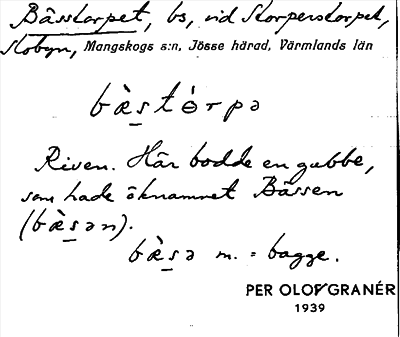 Bässtorpet, bs, vid Storperstorpet,
slobyn, Mangskogs s:n, Jösse härad, Värmlands län
bæ̀s̠tórpə
Riven. Här bodde en gubbe,
som hade öknamnet Bässen
(bæ̀s̠ən).
bæ̀s̠ə m. = bagge.
PER OLOF GRANÉR
1939